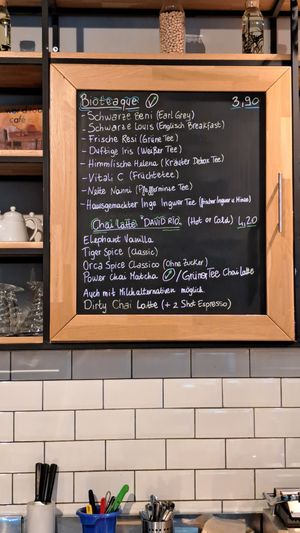 Bioteaque 3,90
- Schwarze Beni (Earl Grey)
- Schwarze Louis (Englisch Breakfast)
- Frische Resi (Grüne Tee)
- Duftige Iris (Weißer Tee)
- Himmlische Helena (Kräuter Detox Tee)
- Vitali C (Früchtetee)
- Nette Nanni (Pfefferminze Tee)
- Hausgemachter Inge Ingwer Tee (frischer Ingwer u. Minze)
Chai Latte "DAVID RIO" (Hot or Cold) 4,20
Elephant Vanilla
Tiger Spice (Classic)
Orca Spice Classico (Ohne Zucker)
Power Chai Matcha /Grüner Tee Chai Latte
Auch mit Milchalternativen möglich
Dirty Chai Latte (+ 2 Shot Espresso)
café